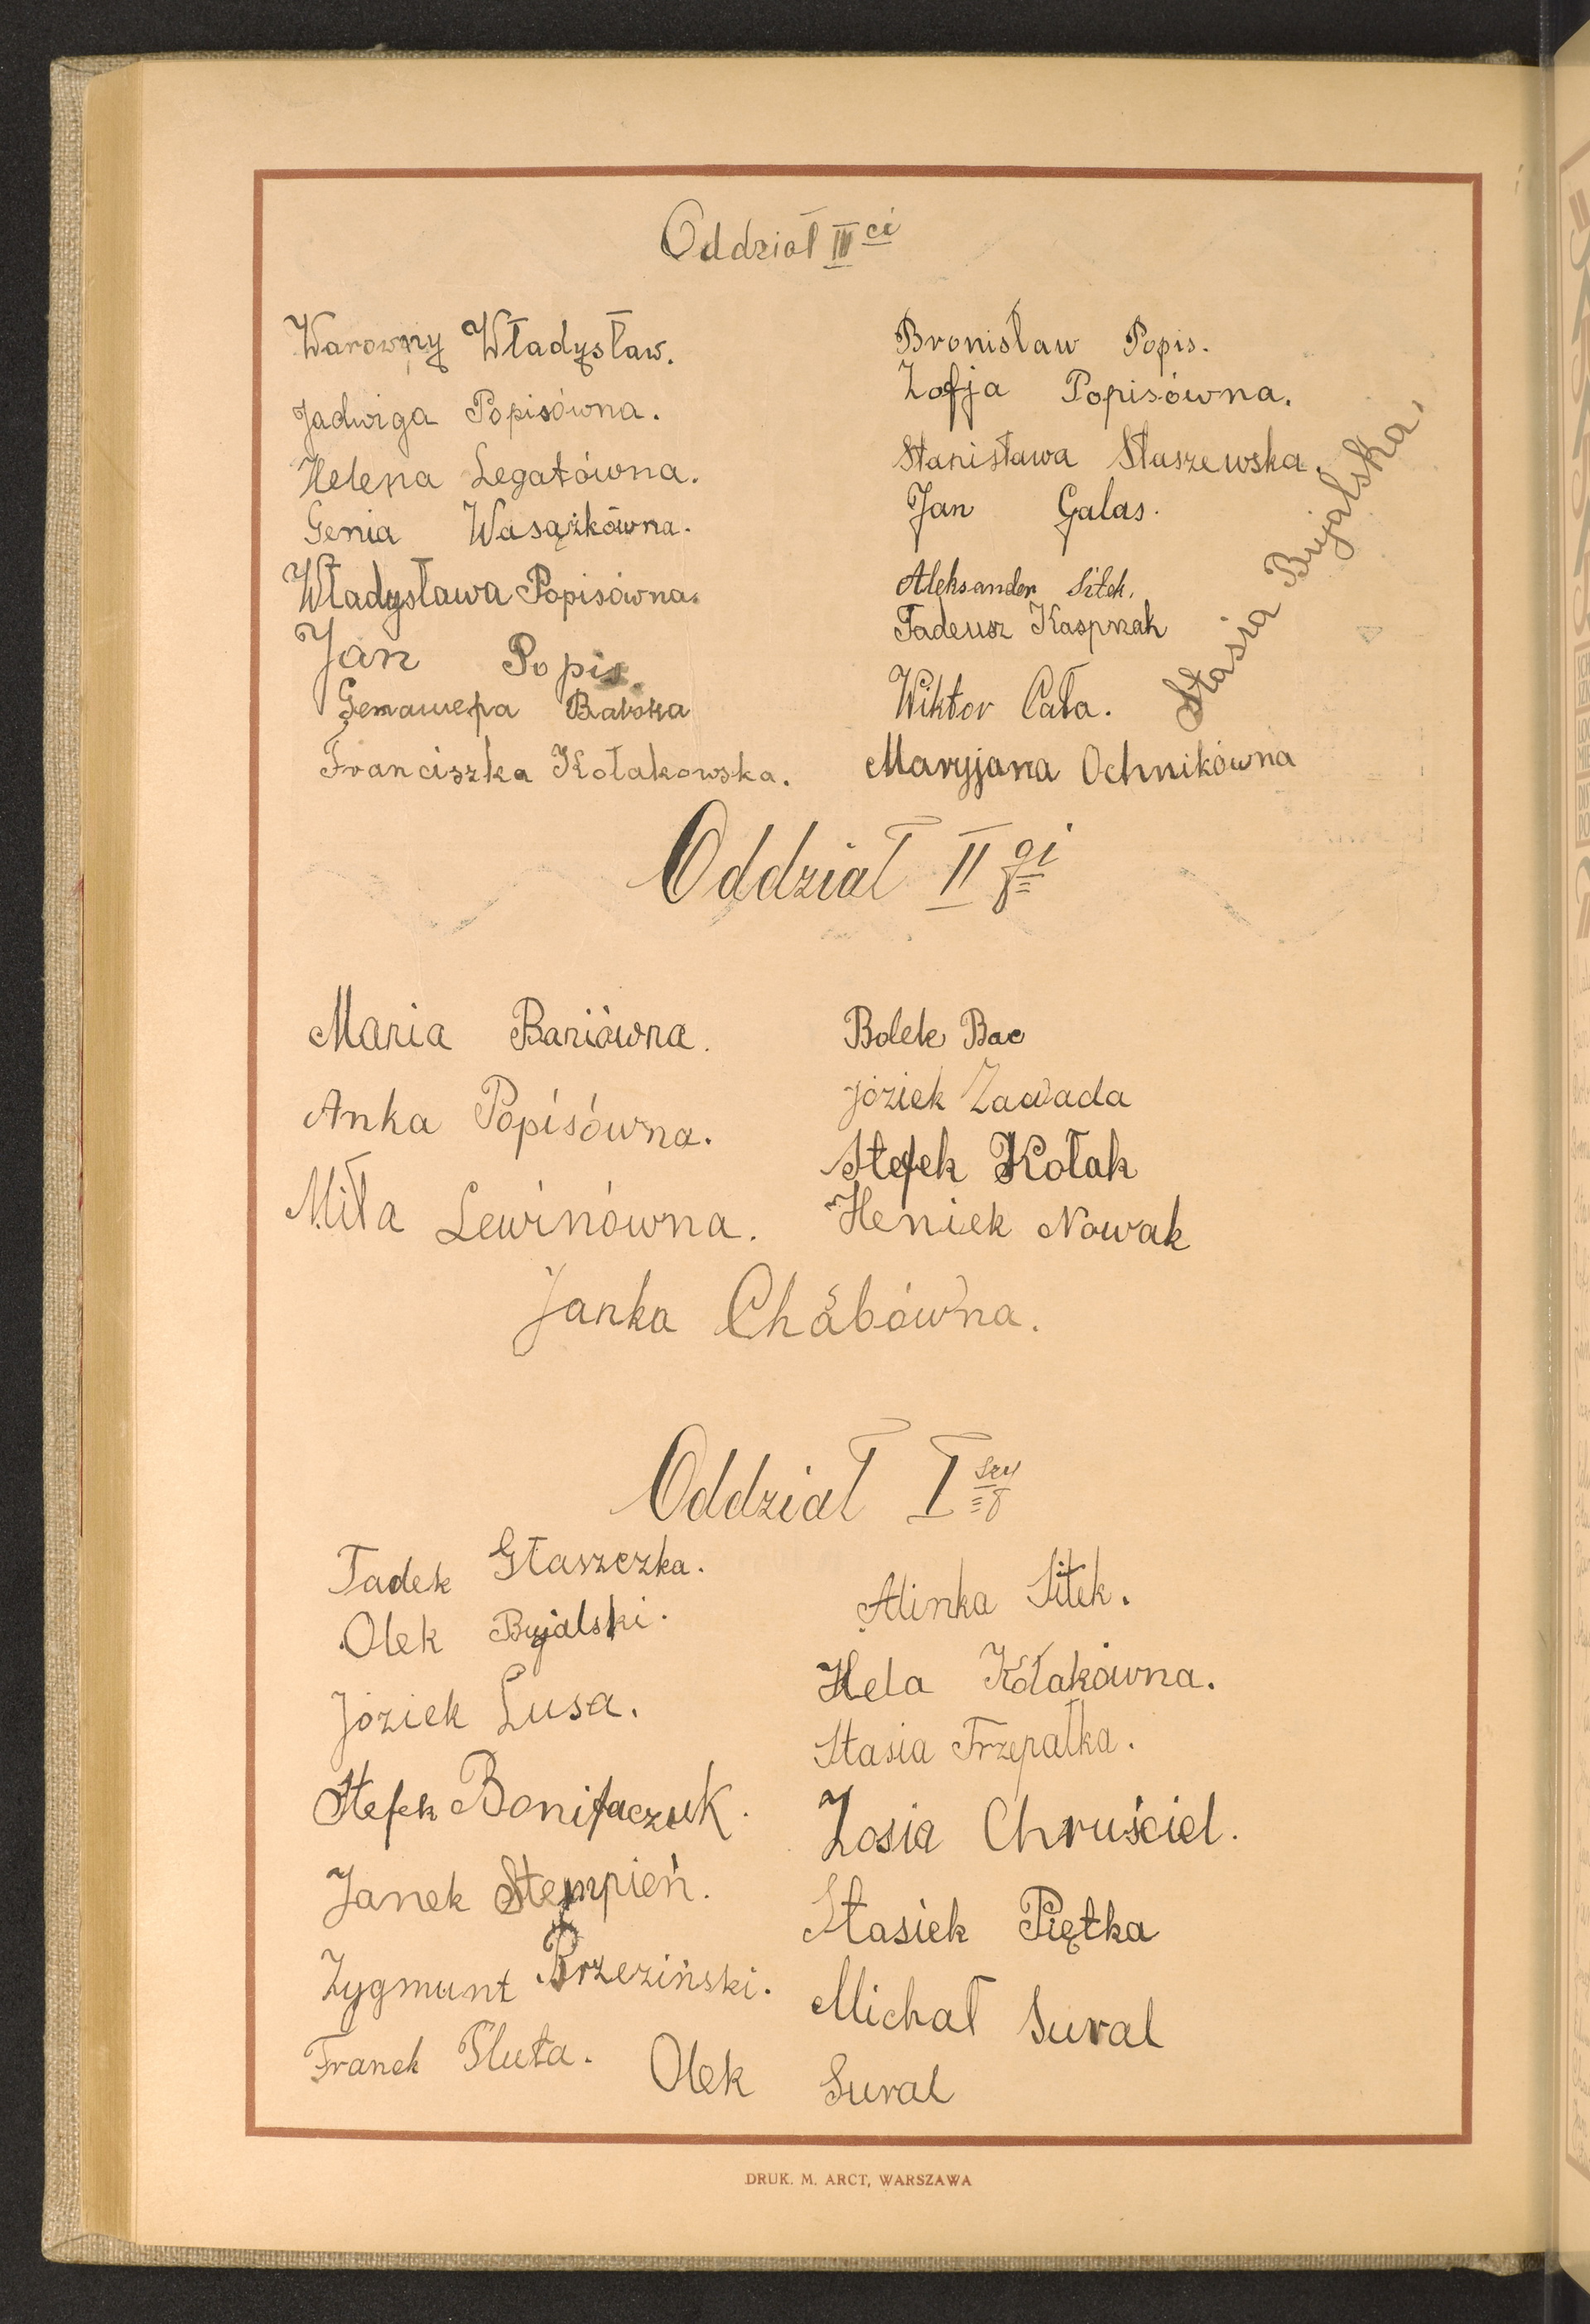 Oddział III ci
Warowny Władysław.
Jadwiga Popisówna.
Helena Legatówna.
Genia Wasążkówna.
Władysława Popisówna.
Jan Popis.
Genawefa Babska
Franciszka Kołakowska.
Bronisław Popis.
Zofja Popisówna.
Stanisława Staszewska.
Jan Galas.
Aleksander Sitek.
Tadeusz Kasprzak
Wiktor Cała.
Maryjana Ochnikówna
Stasia Bujalska,
Oddział II gi
Maria Baniówna.
Anka Popisówna.
Miła Lewinówna.
Bolek Bac
Józiek Zawada
Stefek Kołak
Heniek Nowak
Janka Chabówna.
Oddział I szy
Tadek Głaszczka.
Olek Bujalski.
Józiek Lusa.
Stefek Bonifaczuk.
Janek Stempień.
Zygmunt Brzeziński.
Franek Pluta.
Alinka Sitek.
Hela Kołakówna.
Stasia Trzepałka.
Zosia Chruściel.
Stasiek Piętka
Michał Sural
Olek Sural
DRUK. M. ARCT, WARSZAWA